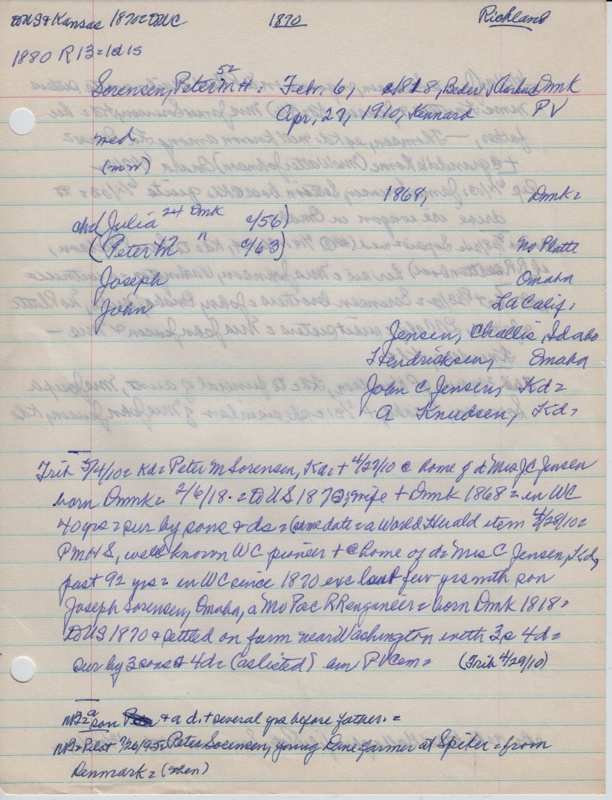 to US & Kansas 1870 = to WC 1870 Richland
1880 R13 = 1d 15
52
Sorensen, Peter M H. Feb. 6, 1818, Beder, Aarhus Dmk
Apr, 27, 1910, Kennard PV
med
(mow)
1868, Dmk =
chd (Julia 24 Dmk c/56)
(Peter M 17 " c/63) No Platte
Joseph Omaha
John LA Calif,
Jensen, Challis, Idaho
Hendricksen, Omaha
John C Jensen, Kd =
A Knudsen, Kd,
Trib 5/4/10 = Kd = Peter M Sorensen, Kd = + 4/27/10 @ home of d = Mrs JC Jensen
born Dmk = 2/6/18 = to US 1870, wife + Dmk 1868 = in WC
40 yrs = sur by sons & ds = (same date = a World Herald item 4/28/10 =
PMHS, well known WC pioneer + @ home of d = Mrs C Jensen, Kd,
past 92 yrs = in WC since 1870 exc last few yrs with son
Joseph Sorensen, Omaha, a Mo Pac RR engineer = born Dmk 1818 =
to US 1870 & settled on farm near Washington with 3s 4d =
sur by 3 sons & 4d = (as listed) bur PV Cem = (Trib 4/29/10)
NB = a son & a d. + several yrs before father. =
NB = Pilot 7/26/95 = Peter Sorensen, young Dane farmer at Spiker = from
Denmark = (mow)